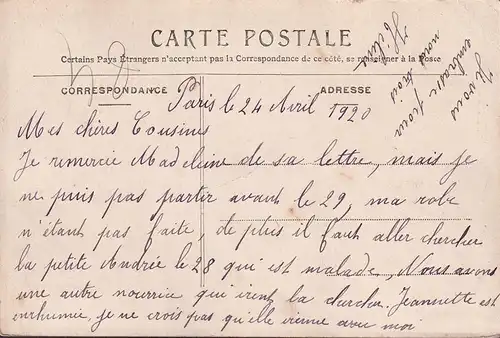 CARTE POSTALE
Certains Pays Étrangers n'acceptant pas la Correspondance de ce côté, se renseigner à la Poste
CORRESPONDANCE
ADRESSE
Paris le 24 Avril 1920
Mes chères Cousines
Je remercie Madeleine de sa lettre, mais je
ne puis pas partir avant le 29, ma robe
n'étant pas faite, de plus il faut aller chercher
la petite Andrée le 28 qui est malade, Nous avons
une autre nourrice qui vient la chercher. Jeannette est
enrhumée, je ne crois pas qu'elle vienne avec moi
Je vous
embrasse pour
nous tous